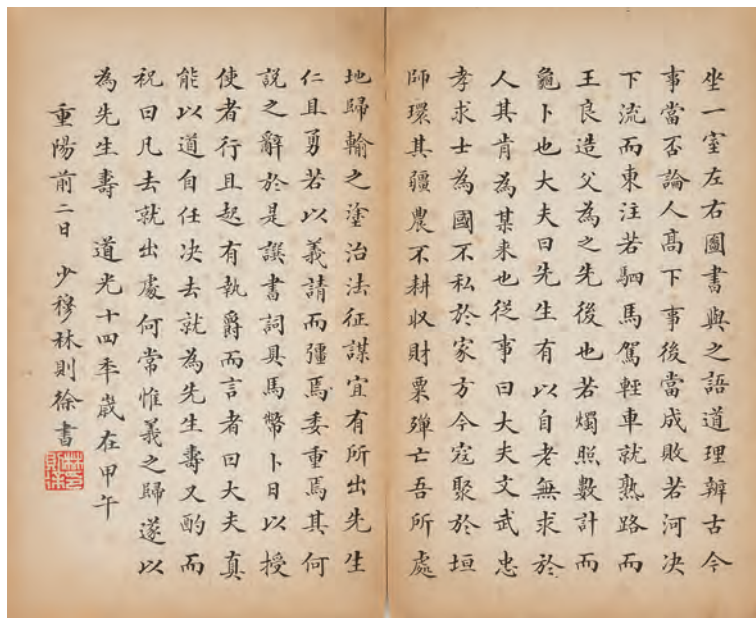 坐一室左右圖書與之語道理辨古今
事當否論人髙下事後當成敗若河决
下流而東注若駟馬駕輕車就熟路而
王良造父為之先後也若燭照數計而
龜卜也大夫曰先生有以自老無求於
人其肯為某来也從事曰大夫文武忠
孝求士為國不私於家方今寇聚於垣
師環其疆農不耕収財粟殫亡吾所處
地歸輸之塗治法征謀宜有所出先生
仁且勇若以義請而彊焉委重焉其何
説之辭於是譔書詞具馬幣卜日以授
使者行且起有執爵而言者曰大夫真
能以道自任决去就為先生壽又酌而
祝曰凡去就出處何常惟義之歸遂以
為先生壽 道光十四年歲在甲午
重陽前二日 少穆林則徐書
林印則徐